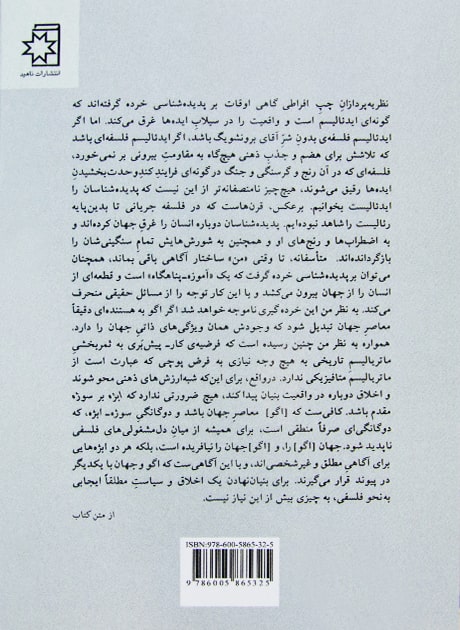 انتشارات ناهید
نظریه‌پردازان چپِ افراطی گاهی اوقات بر پدیده‌شناسی خرده گرفته‌اند که
گونه‌ای ایدئالیسم است و واقعیت را در سیلاب ایده‌ها غرق می‌کند. اما اگر
ایدئالیسم فلسفه‌ی بدونِ شرّ آقای برونشویگ باشد، اگر ایدئالیسم فلسفه‌ای باشد
که تلاشش برای هضم و جذبِ ذهنی هیچ‌گاه به مقاومتِ بیرونی بر نمی‌خورد،
فلسفه‌ای که در آن رنج و گرسنگی و جنگ در گونه‌ای فرایندِ کندِ وحدت‌بخشیدنِ
ایده‌ها رقیق می‌شوند، هیچ‌چیز نامنصفانه‌تر از این نیست که پدیده‌شناسان را
ایدئالیست بخوانیم. برعکس، قرن‌هاست که در فلسفه جریانی تا بدین‌پایه
رئالیست را شاهد نبوده‌ایم. پدیده‌شناسان دوباره انسان را غرقِ جهان کرده‌اند و
به اضطراب‌ها و رنج‌های او و همچنین به شورش‌هایش تمامِ سنگینی‌شان را
بازگردانده‌اند. متأسفانه، تا وقتی «من» ساختارِ آگاهی باقی بماند، همچنان
می‌توان بر پدیده‌شناسی خرده گرفت که یک «آموزه-پناهگاه» است و قطعه‌ای از
انسان را از جهان بیرون می‌کشد و با این کار توجه را از مسائل حقیقی منحرف
می‌کند. به نظر من این خرده‌گیری ناموجه خواهد شد اگر اگو به هستنده‌ای دقیقاً
معاصرِ جهان تبدیل شود که وجودش همان ویژگی‌های ذاتیِ جهان را دارد.
همواره به نظر من چنین رسیده است که فرضیه‌ی کار- پیش‌بَری به ثمربخشیِ
ماتریالیسم تاریخی به هیچ وجه نیازی به فرض پوچی که عبارت است از
ماتریالیسم متافیزیکی ندارد. درواقع، برای این‌که شبه‌ارزش‌های ذهنی محو شوند
و اخلاق دوباره در واقعیت بنیان پیدا کند، هیچ ضرورتی ندارد که ابژه بر سوژه
مقدم باشد. کافی‌ست که [اگو] معاصرِ جهان باشد و دوگانگیِ سوژه- ابژه، که
دوگانه‌ای صرفاً منطقی است، برای همیشه از میانِ دل‌مشغولی‌های فلسفی
ناپدید شود. جهان [اگو] را، و [اگو] جهان را نیافریده است، بلکه هر دو ابژه‌هایی
برای آگاهیِ مطلق و غیرشخصی‌اند، و با این آگاهی‌ست که اگو و جهان با یکدیگر
در پیوند قرار می‌گیرند. برای بنیان‌نهادن یک اخلاق و سیاستِ مطلقاً ایجابی
به‌نحو فلسفی، به چیزی بیش از این نیاز نیست.
از متن کتاب
ISBN:978-600-5865-32-5
9 786005 865325